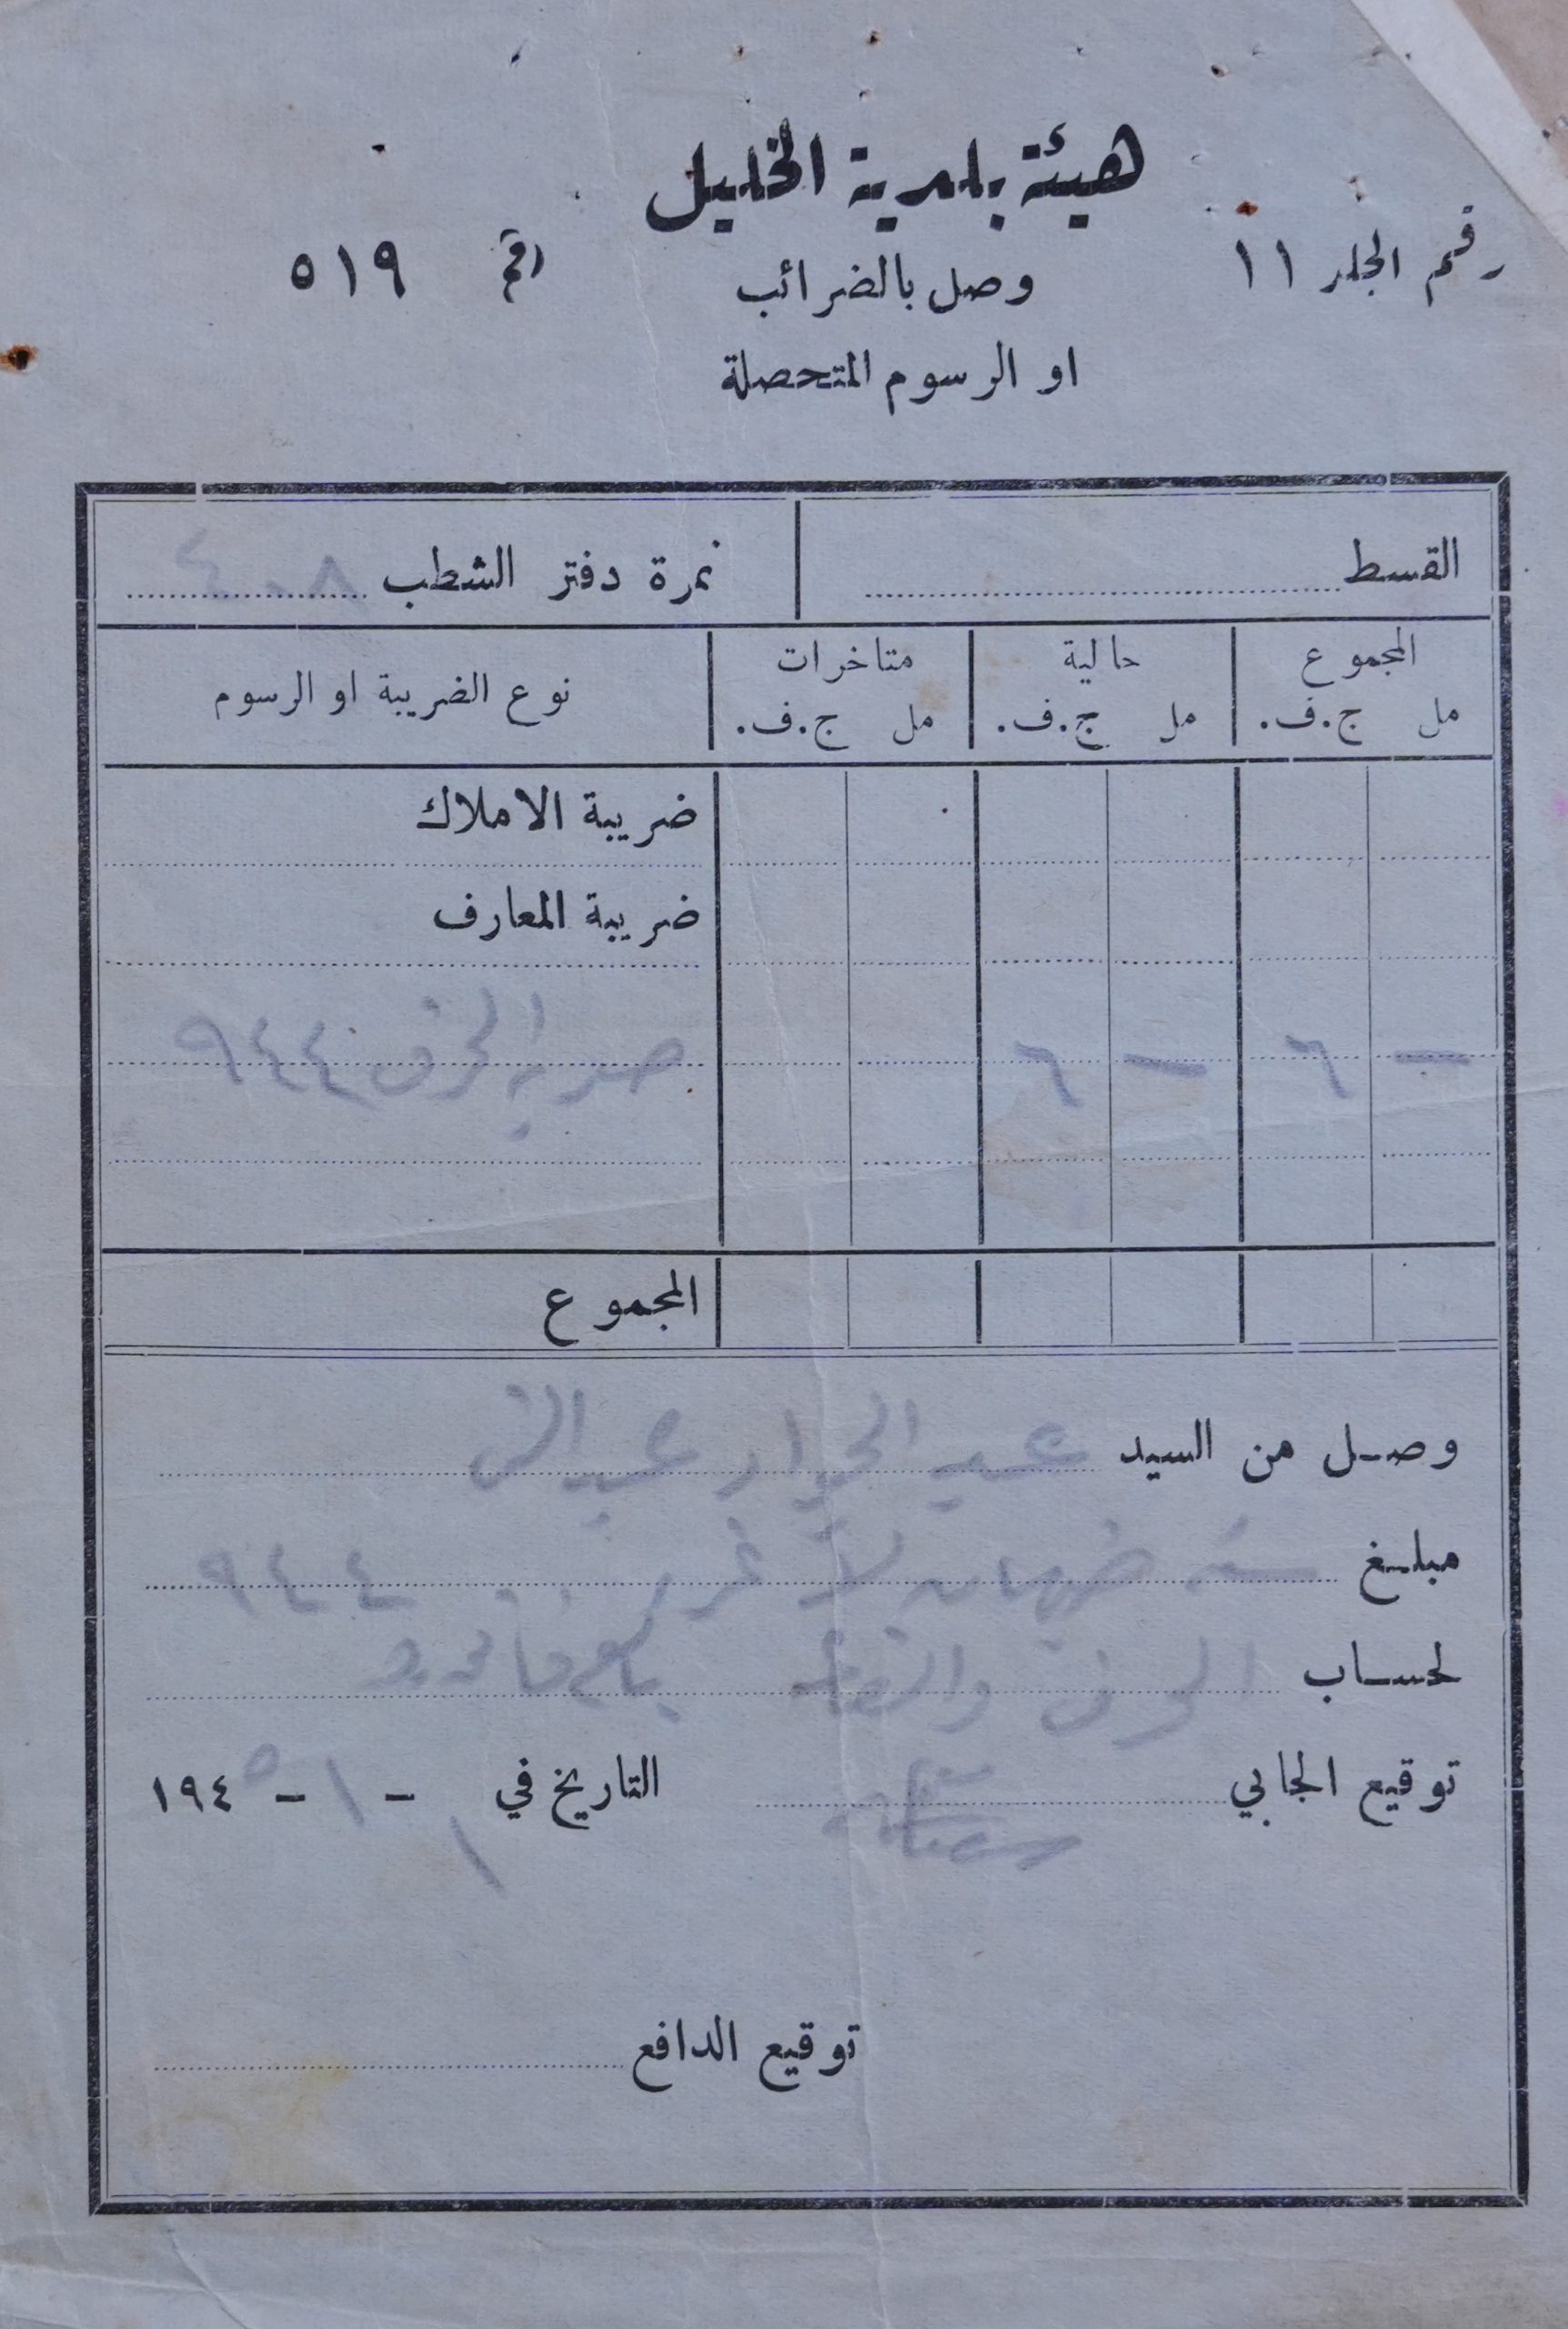 هيئة بلدية الخليل
رقم الجلد ١١
وصل بالضرائب
رقم ٥١٩
او الرسوم المتحصلة
القسط
نمرة دفتر الشطب ٤٠٨
المجموع حالية متاخرات
نوع الضريبة او الرسوم
مل ج.ف. مل ج.ف. مل ج.ف.
ضريبة الاملاك
ضريبة المعارف
- ٦ - ٦ ضريبة الحرف ٩٤٤
المجموع
وصل من السيد عبد
مبلغ ستة جنيهات لا غير ٩٤٤
لحساب الحرف
توقيع الجابي
التاريخ في ١ - ١ - ١٩٤٥
توقيع الدافع